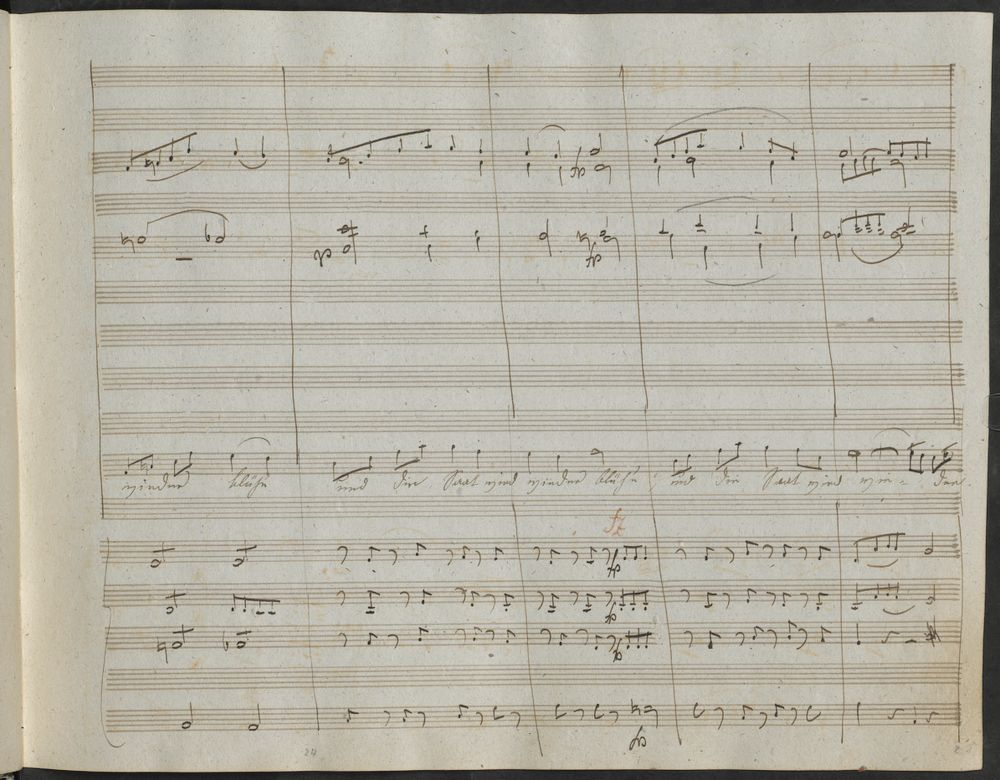 wieder blühn und die Saat wird wieder blühn und die Saat wird wie- der
24